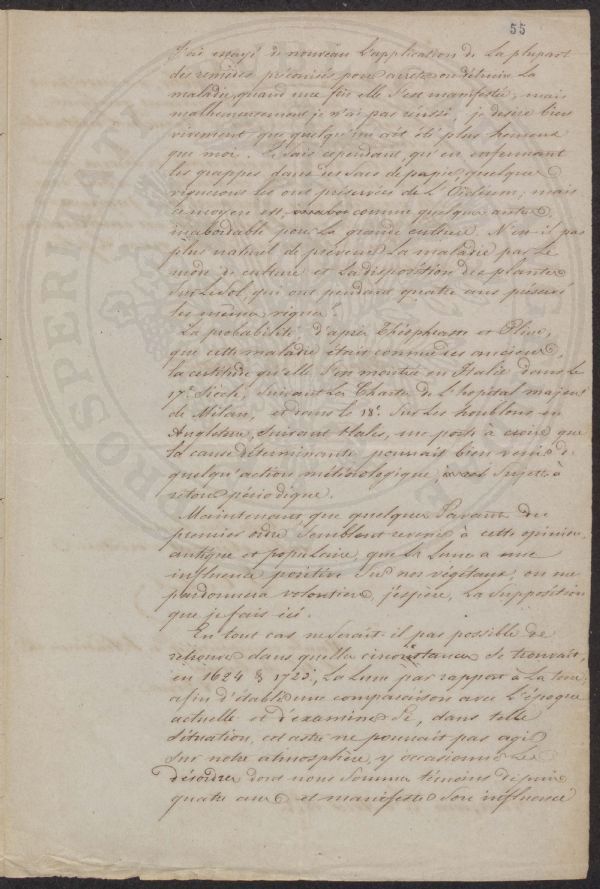 55
J'ai essayé de nouveau l'application de la plupart
des remèdes préconisés pour arrêter ou détruire la
maladie, quand une fois elle s'est manifestée; mais
malheureusement je n'ai pas réussi; je désire bien
vivement que quelqu'un ait été plus heureux
que moi. Je sais cependant, qu'en enfermant
les grappes dans des sacs de papier, quelques
vignerons les ont préservées de l'Oïdium; mais
ce moyen est, comme quelques autres,
inabordable pour la grande culture. N'en-il pas
plus naturel de prévenir la maladie par le
mode de culture et la disposition des plantes
sur le sol, qui ont pendant quatre ans préservé
les mêmes vignes?
La probabilité d'après Théophraste et Pline,
que cette maladie était connue des anciens,
la certitude qu'elle s'en montrée en Italie dans le
17e Siècle, suivant les Chartes de l'hopital majeur
de Milan, et dans le 18e sur les houblons en
Angleterre, suivant Hales, me porte à croire que
la cause déterminante pourrait bien venir de
quelqu'action météorologique, sujette à
retour périodique.
Maintenant que quelques Savants du
premier ordre semblent revenir à cette opinion
antique et populaire, que la Lune a une
influence positive sur nos végétaux, on me
pardonnera volontiers, j'espère, la supposition
que je fais ici.
En tout cas ne serait-il pas possible de
retrouver dans quelles circonstances se trouvait,
en 1624 & 1723, la Lune par rapport à la terre,
afin d'établir une comparaison avec l'époque
actuelle et d'examiner si, dans telle
situation, cet astre ne pouvait pas agir
sur notre atmosphère, y occasionner les
désordres dont nous sommes témoins depuis
quatre ans et manifester son influence
PROSPERITATI